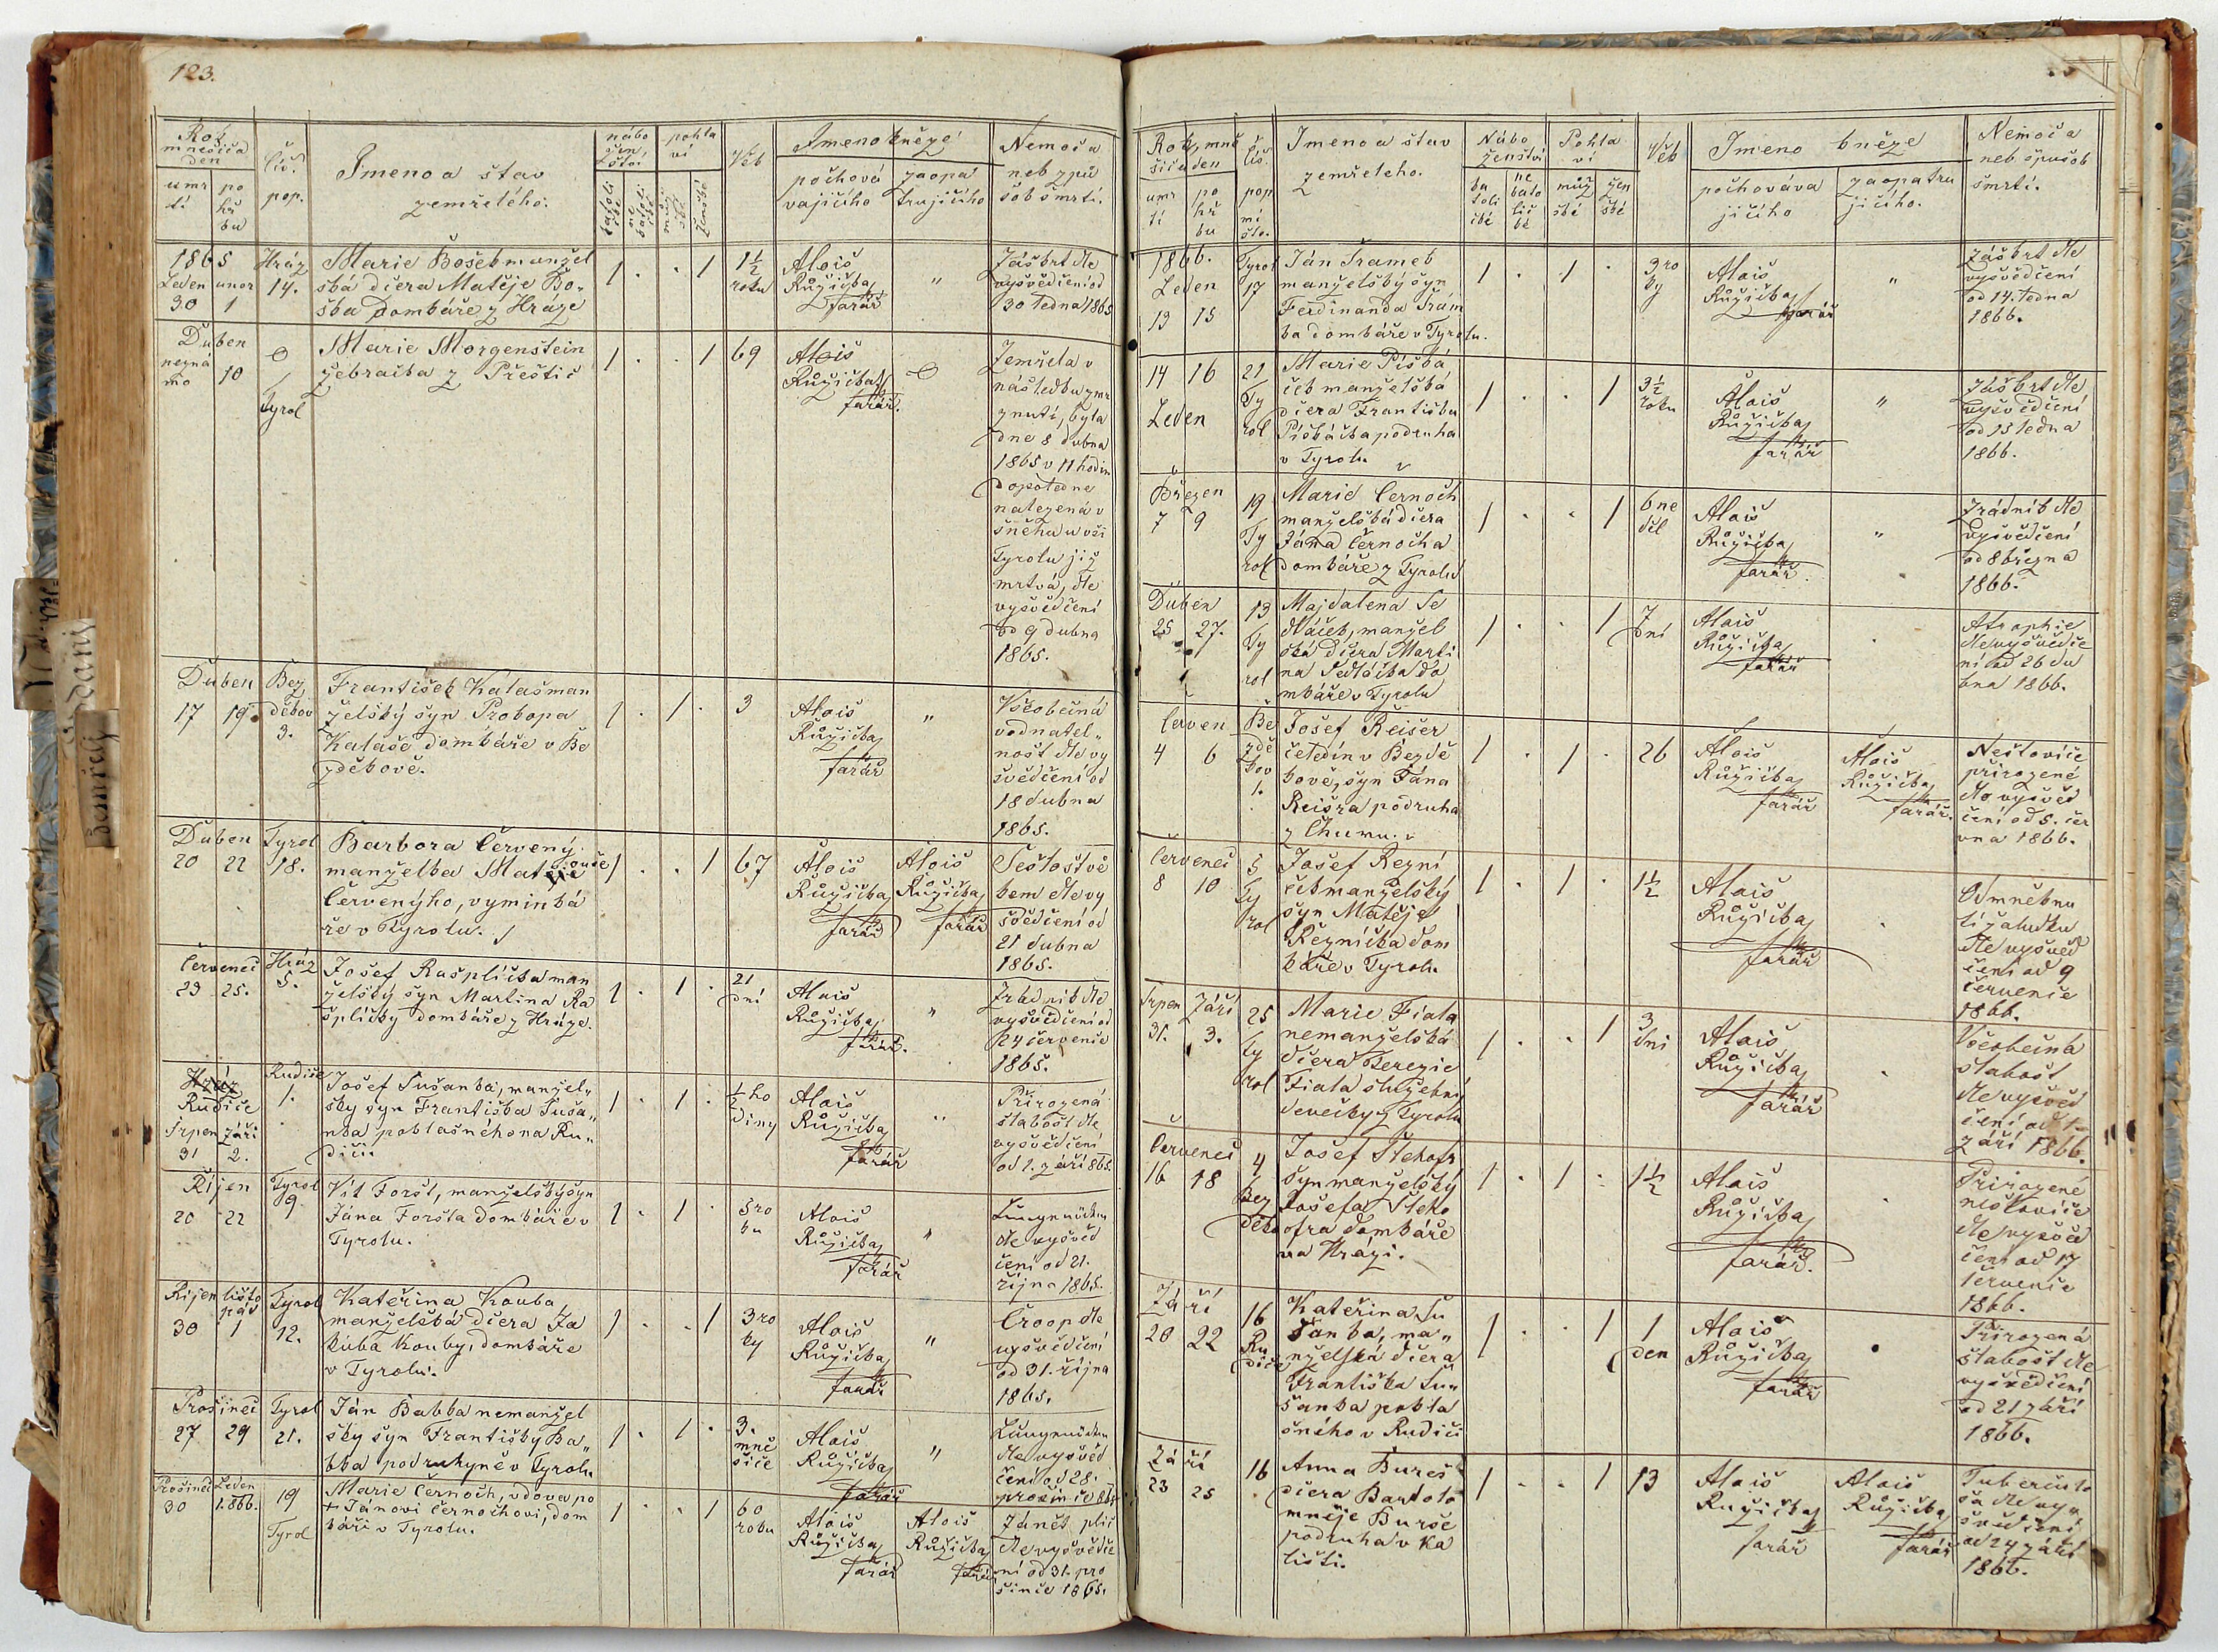 123.
Rok
měsíce
den
umr
tí
po
hř
bu
čís.
pop.
Jmeno a stav
zemřelého.
nábo
žen,
ství
katoli
cké
ne
katoli
cké
pohla
ví
muž
ské
ženské
Věk
Jmeno kněze
pochová
vajícího
zaopa
trujícího
Nemoc a
neb způ
sob smrti.
1865
Leden unor
30 1
Hráz
14.
Marie Bošek manžel
ská dcera Matěje Bo„
ška domkáře z Hráze
1 . . 1
1½
roku
Alois
Růžička
farář
„
Záškrt dle
vysvědčení od
30 ledna 1865
Duben
nezná
mo 10
0
Tyrol
Marie Morgenstein
žebračka z Přeštic
1 . . 1
69
Alois
Růžička
farář.
0
Zemřela v
následku zmr
znutí, byla
dne 8 dubna
1865 v 11 hodin
dopoledne
nalezená v
sněhu u vsi
Tyrolu již
mrtvá, dle
vysvědčení
od 9 dubna
1865.
Duben
17 19.
Bez
děkov
3.
František Kalaš man
želský syn Prokopa
Kalaše domkáře v Be
zděkově.
1 . 1 .
3
Alois
Růžička
farář
„
Všeobecná
vodnatel„
nost dle vy
svědčení od
18 dubna
1865.
Duben
20 22
Tyrol
18.
Barbora Červený
manželka Matouše
Červenýho, vyminká
ře v Tyrolu.
1 . . 1
67
Alois
Růžička
farář
Alois
Růžička
farář
Sešlost vě
kem dle vy
svědčení od
21 dubna
1865.
Červenec
23 25.
Hráz
5.
Josef Rašplička man
želský syn Martina Ra
špličky domkáře z Hráze.
1 . 1 .
21
dní
Alois
Růžička
farář.
„
dle
vysvědčení od
24 července
1865.
Hráz
Rudice
Srpen září
31 2.
Rudice
1.
Josef Sušanka, manžel„
ský syn Františka Suša„
nka poklasného na Ru„
dici
1 . 1 .
½ ho
diny
Alois
Růžička
farář
„
Přirozená
slabost dle
vysvědčení
od 1. září 865.
Říjen
20 22
Tyrol
9
Vít Foršt, manželský syn
Jána Foršta domkáře v
Tyrolu.
1 . 1 .
5 ro
ku
Alois
Růžička
farář
„
dle vysvěd
čení od 21.
října 1865.
Říjen listo
pad
30 1
Tyrol
12.
Kateřina Kouba
manželská dcera Ja
kuba Kouby, domkáře
v Tyrolu.
1 . . 1
3 ro
ky
Alois
Růžička
farář
„
Croop dle
vysvědčení
od 31. října
1865.
Prosinec
27 29
Tyrol
21.
Ján Babka nemanžel
ský syn Františky Ba„
bka podruhyně v Tyrolu
1 . 1 .
3.
mě
síce
Alois
Růžička
farář
„
dle vysvěd
čení od 28.
prosince 865
Prosinec Leden
30 1.866.
19
Tyrol
Marie Černoch, vdova po
+ Jánovi Černochovi, dom
káři v Tyrolu.
1 . . 1
60
roku
Alois
Růžička
farář
Alois
Růžička
farář
Zánět plic
dle vysvědče
ní od 31. pro
since 1865.
Rok, mně
síc a den
umr
tí
po
hř
bu
čís.
pop.
mí
sto.
Jmeno a stav
zemřelého.
Nábo
ženství
ka
toli
cké
ne
kato
lic
ké
Pohla
ví
muž
ské
žen
ské
Věk
Jmeno kněze
pochováva
jícího
zaopatru
jícího.
Nemoc a
neb spusob
smrti.
1866.
Leden
13 15
Tyrol
17
Ján Šramek
manželský syn
Ferdinanda Šrám
ka domkáře v Tyrolu.
1 . 1 .
3 ro
ky
Alois
Růžička
farář
„
Záškrt dle
vysvědčení
od 14. ledna
1866.
14 16
Leden
21
Ty
rol
Marie Piská
ček manželská
dcera Františka
Piskáčka podruha
v Tyrolu
1 . . 1
3½
roku
Alois
Růžička
farář
„
Záškrt dle
vysvědčení
od 15 ledna
1866.
Březen
7 9
19
Ty
rol
Marie Černoch
manželská dcera
Jána Černocha
domkáře z Tyrolu
1 . . 1
6 ne
děl
Alois
Růžička
farář.
„
Psádník dle
vysvědčení
od 8 března
1866.
Duben
25 27.
13
Ty
rol
Majdalena Se
dláček, manžel
ská dcera Marti
na Sedláčka do
mkáře v Tyrolu
1 . . 1
7
dní
Alois
Růžička
farář
.
Atrophie
dle vysvědče
ní od 26 du
bna 1866.
Červen
4 6
Be
zdě
kov
1.
Josef Reiser
čeledín v Bezdě
kově, syn Jána
Reisra podruha
z Chumu.
1 . 1 .
26
Alois
Růžička
farář
Alois
Růžička
farář.
Neštovice
přirozené
dle vysvěd
čení od 5. čer
vna 1866.
Červenec
8 10
5
Ty
rol
Josef Rezní
ček manželský
syn Matěje
Řezníčka dom
káře v Tyrolu
1 . 1 .
1½
Alois
Růžička
farář
.
Odměknu
tí žaludku
dle vysvěd
čení od 9
července
1866.
Srpen Září
31. 3.
25
Ty
rol
Marie Fiala
nemanželská
dcera Terezie
Fiala služebný
devečky z Tyrolu
1 . . 1
3
dni
Alois
Růžička
farář
.
Všeobecná
slabost
dle vysvěd
čení od 1.
září 1866.
Červenec
16 18
4
Bez
děko
Josef Štehofr
syn manželský
Josefa Šteho
ofra domkáře
na Hrázi.
1 . 1 .
1½
Alois
Růžička
farář.
.
Přirozené
neštovice
dle vysvěd
čení od 17
července
1866.
Září
20 22
16
Ru
dice
Kateřina Su
šanka, ma„
nželská dcera
Františka Su„
šanka pokla
sného v Rudici
1 . . 1
1
den
Alois
Růžička
farář
.
Přirozená
slabost dle
vysvědčení
od 21 září
1866.
Září
23 25
16
Anna Bureš
dcera Bartolo
měje Burše
podruha v Ka
lišti.
1 . . 1
13
Alois
Růžička
farář
Alois
Růžička
farář
Tuberculo
sa dle vy„
svědčení
od 24 září
1866.
Zemřelý